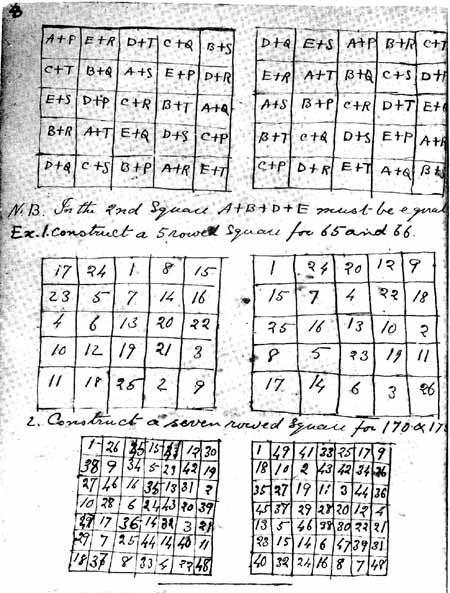 A+P E+R D+T C+Q B+S D+Q E+S A+P B+R C+T
C+T B+Q A+S E+P D+R E+R A+T B+Q C+S
E+S D+P C+R B+T A+Q A+S B+P C+R D+T
B+R A+T E+Q D+S C+P B+T C+Q D+S E+P
D+Q C+S B+P A+R E+T C+P D+R E+T A+Q
N.B. In the 2nd Square A+B+D+E must be equal
Ex.1. Construct a 5 rowed Square for 65 and 66.
17 24 1 8 15 1 24 20 12 9
23 5 7 14 16 15 7 4 22 18
4 6 13 20 22 25 16 13 10 2
10 12 19 21 3 8 5 23 19 11
11 18 25 2 9 17 14 6 3 26
2. Construct a seven rowed Square for 170 & 17
1 26 45 15 12 30 1 49 41 33 25 17 9
38 9 34 5 23 42 19 18 10 2 43 42 34 26
27 46 16 35 13 31 2 35 27 19 11 3 44 36
10 28 6 24 43 20 39 45 37 29 28 20 12 4
47 17 36 14 32 3 21 13 5 46 38 30 22 21
29 7 25 44 14 40 11 23 15 14 6 47 39 31
18 37 8 33 4 22 48 40 32 24 16 8 7 48